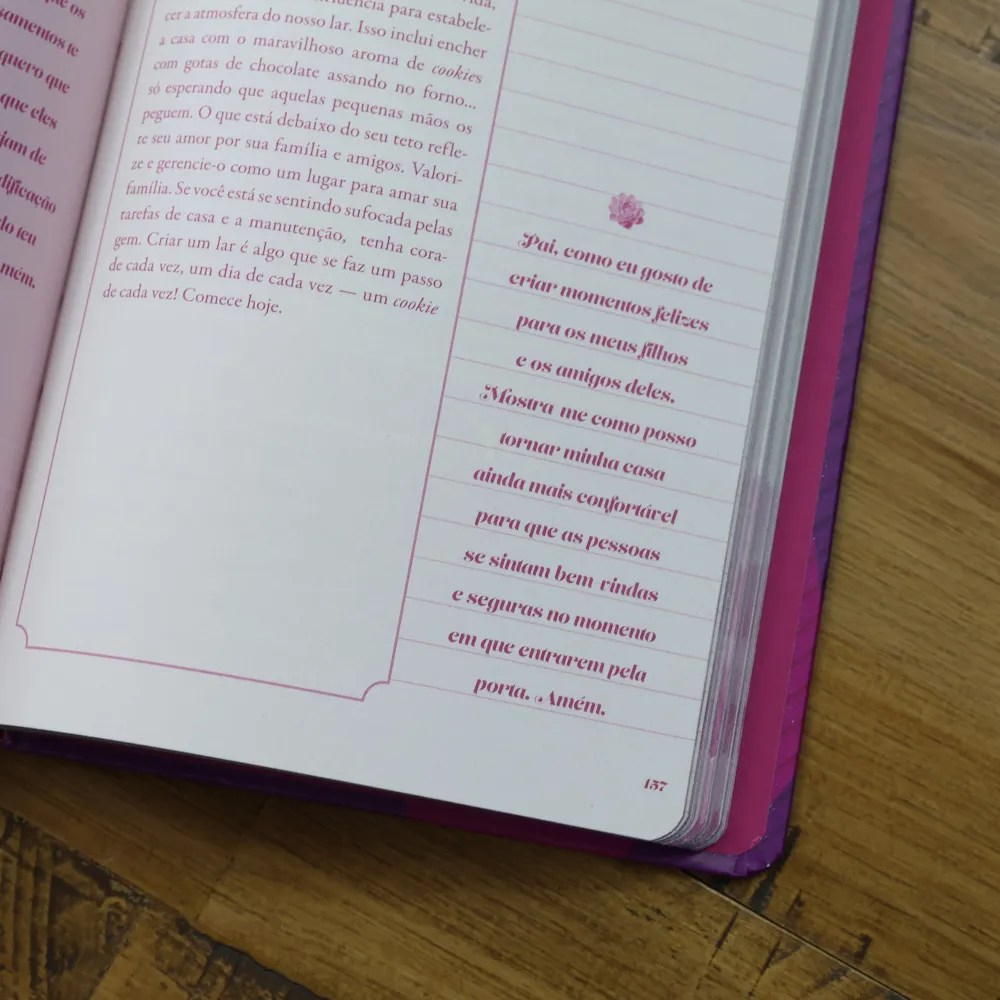 que os
samentos te
quero que
que eles
jam de
dificação
do teu
mém.
vida,
fluência para estabele-
cer a atmosfera do nosso lar. Isso inclui encher
a casa com o maravilhoso aroma de cookies
com gotas de chocolate assando no forno...
só esperando que aquelas pequenas mãos os
peguem. O que está debaixo do seu teto refle-
te seu amor por sua família e amigos. Valori-
ze e gerencie-o como um lugar para amar sua
família. Se você está se sentindo sufocada pelas
tarefas de casa e a manutenção, tenha cora-
gem. Criar um lar é algo que se faz um passo
de cada vez, um dia de cada vez — um cookie
de cada vez! Comece hoje.
Pai, como eu gosto de
criar momentos felizes
para os meus filhos
e os amigos deles.
Mostra me como posso
tornar minha casa
ainda mais confortável
para que as pessoas
se sintam bem vindas
e seguras no momento
em que entrarem pela
porta. Amém.
157